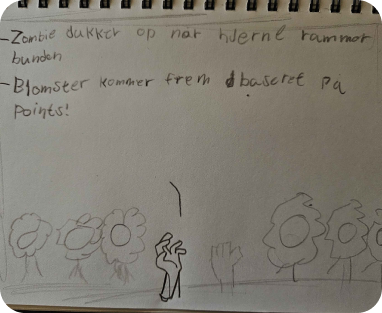 -Zombie dukker op når hjerne rammer
bunden
-Blomster kommer frem baseret på
Points!